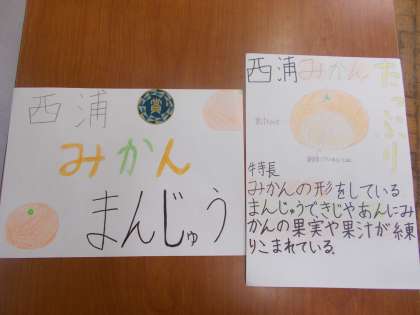 西浦
みかん
まんじゅう
西浦みかん
たっぷり
特長
みかんの形をしている
まんじゅうできじやあんにみ
かんの果実や果汁が練
りこまれている。